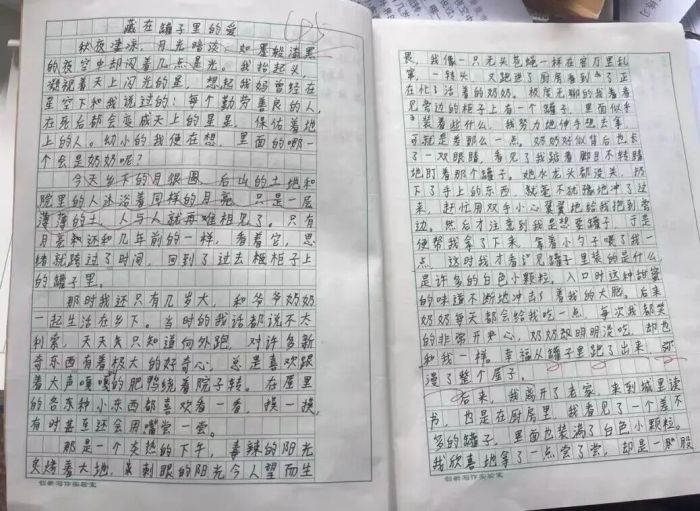 藏在罐子里的爱
秋夜凄凉,月光暗淡,如墨般漆黑
的夜空中却闪着几点星光。我抬起头,
凝视着天上闪光的星,想起我妈曾经在
星空下和我说过的:每个勤劳善良的人,
在死后都会变成天上的星星,保佑着地
上的人。幼小的我便在想,里面的哪一
个会是奶奶呢?
今天乡下的月很圆,后山的土地和
院里的人沐浴着同样的月亮,只是一层
薄薄的土,人与人就再难相见了。只有
月亮和还和几年前的一样,看着它,思
绪就跨过了时间,回到了过去橱柜子上
的罐子里。
那时我还只有几岁大,和爷爷奶奶
一起生活在乡下。当时的我话都说不太
利索,天天只知道向外跑,对许多新
奇东西有着极大的好奇心,总是喜欢跟
着大声嘎嘎的肥鸭绕着院子转。在屋里
的各东种小东西都喜欢看一看,摸一摸,
有时甚至还会用嘴尝一尝。
那是一个炎热的下午,毒辣的阳光
炙烤着大地,刺眼的阳光令人望而生
创新写作实验室
畏,我像一只无头苍蝇一样在客厅里乱
窜,一转头,又跑进了厨房看到了正
在忙活着的奶奶。极度无聊的我看着
见旁边的柜子上有一个罐子,里面似乎
装着些什么,我努力地伸手想去拿,
可就是差那么一点。奶奶好似背后也长
了一双眼睛,看见了我踮着脚目不转睛
地盯着那个罐子。她水龙头都没关,扔
下了手上的东西,就毫不犹豫地冲了过
来,赶忙用双手小心翼翼地给我抱到旁
边。然后才注意到我是想要罐子,于是
便帮我拿了下来,拿着小勺子喂了我一
点,这时我才看见罐子里装的是什么,
是许多的白色小颗粒,入口时这种甜蜜
的味道不断地冲击了着我的大脑。后来
奶奶每天都会给我吃一点,每次我都笑
的非常开心,奶奶却明明没吃,却也
和我一样。幸福从罐子里跑了出来,弥
漫了整个屋子。
后来,我离开了老家,来到城里读
书,也是在厨房里,我看见了一个差不
多的罐子,里面也装满了白色小颗粒。
我欣喜地拿了一点尝了尝,却是一股